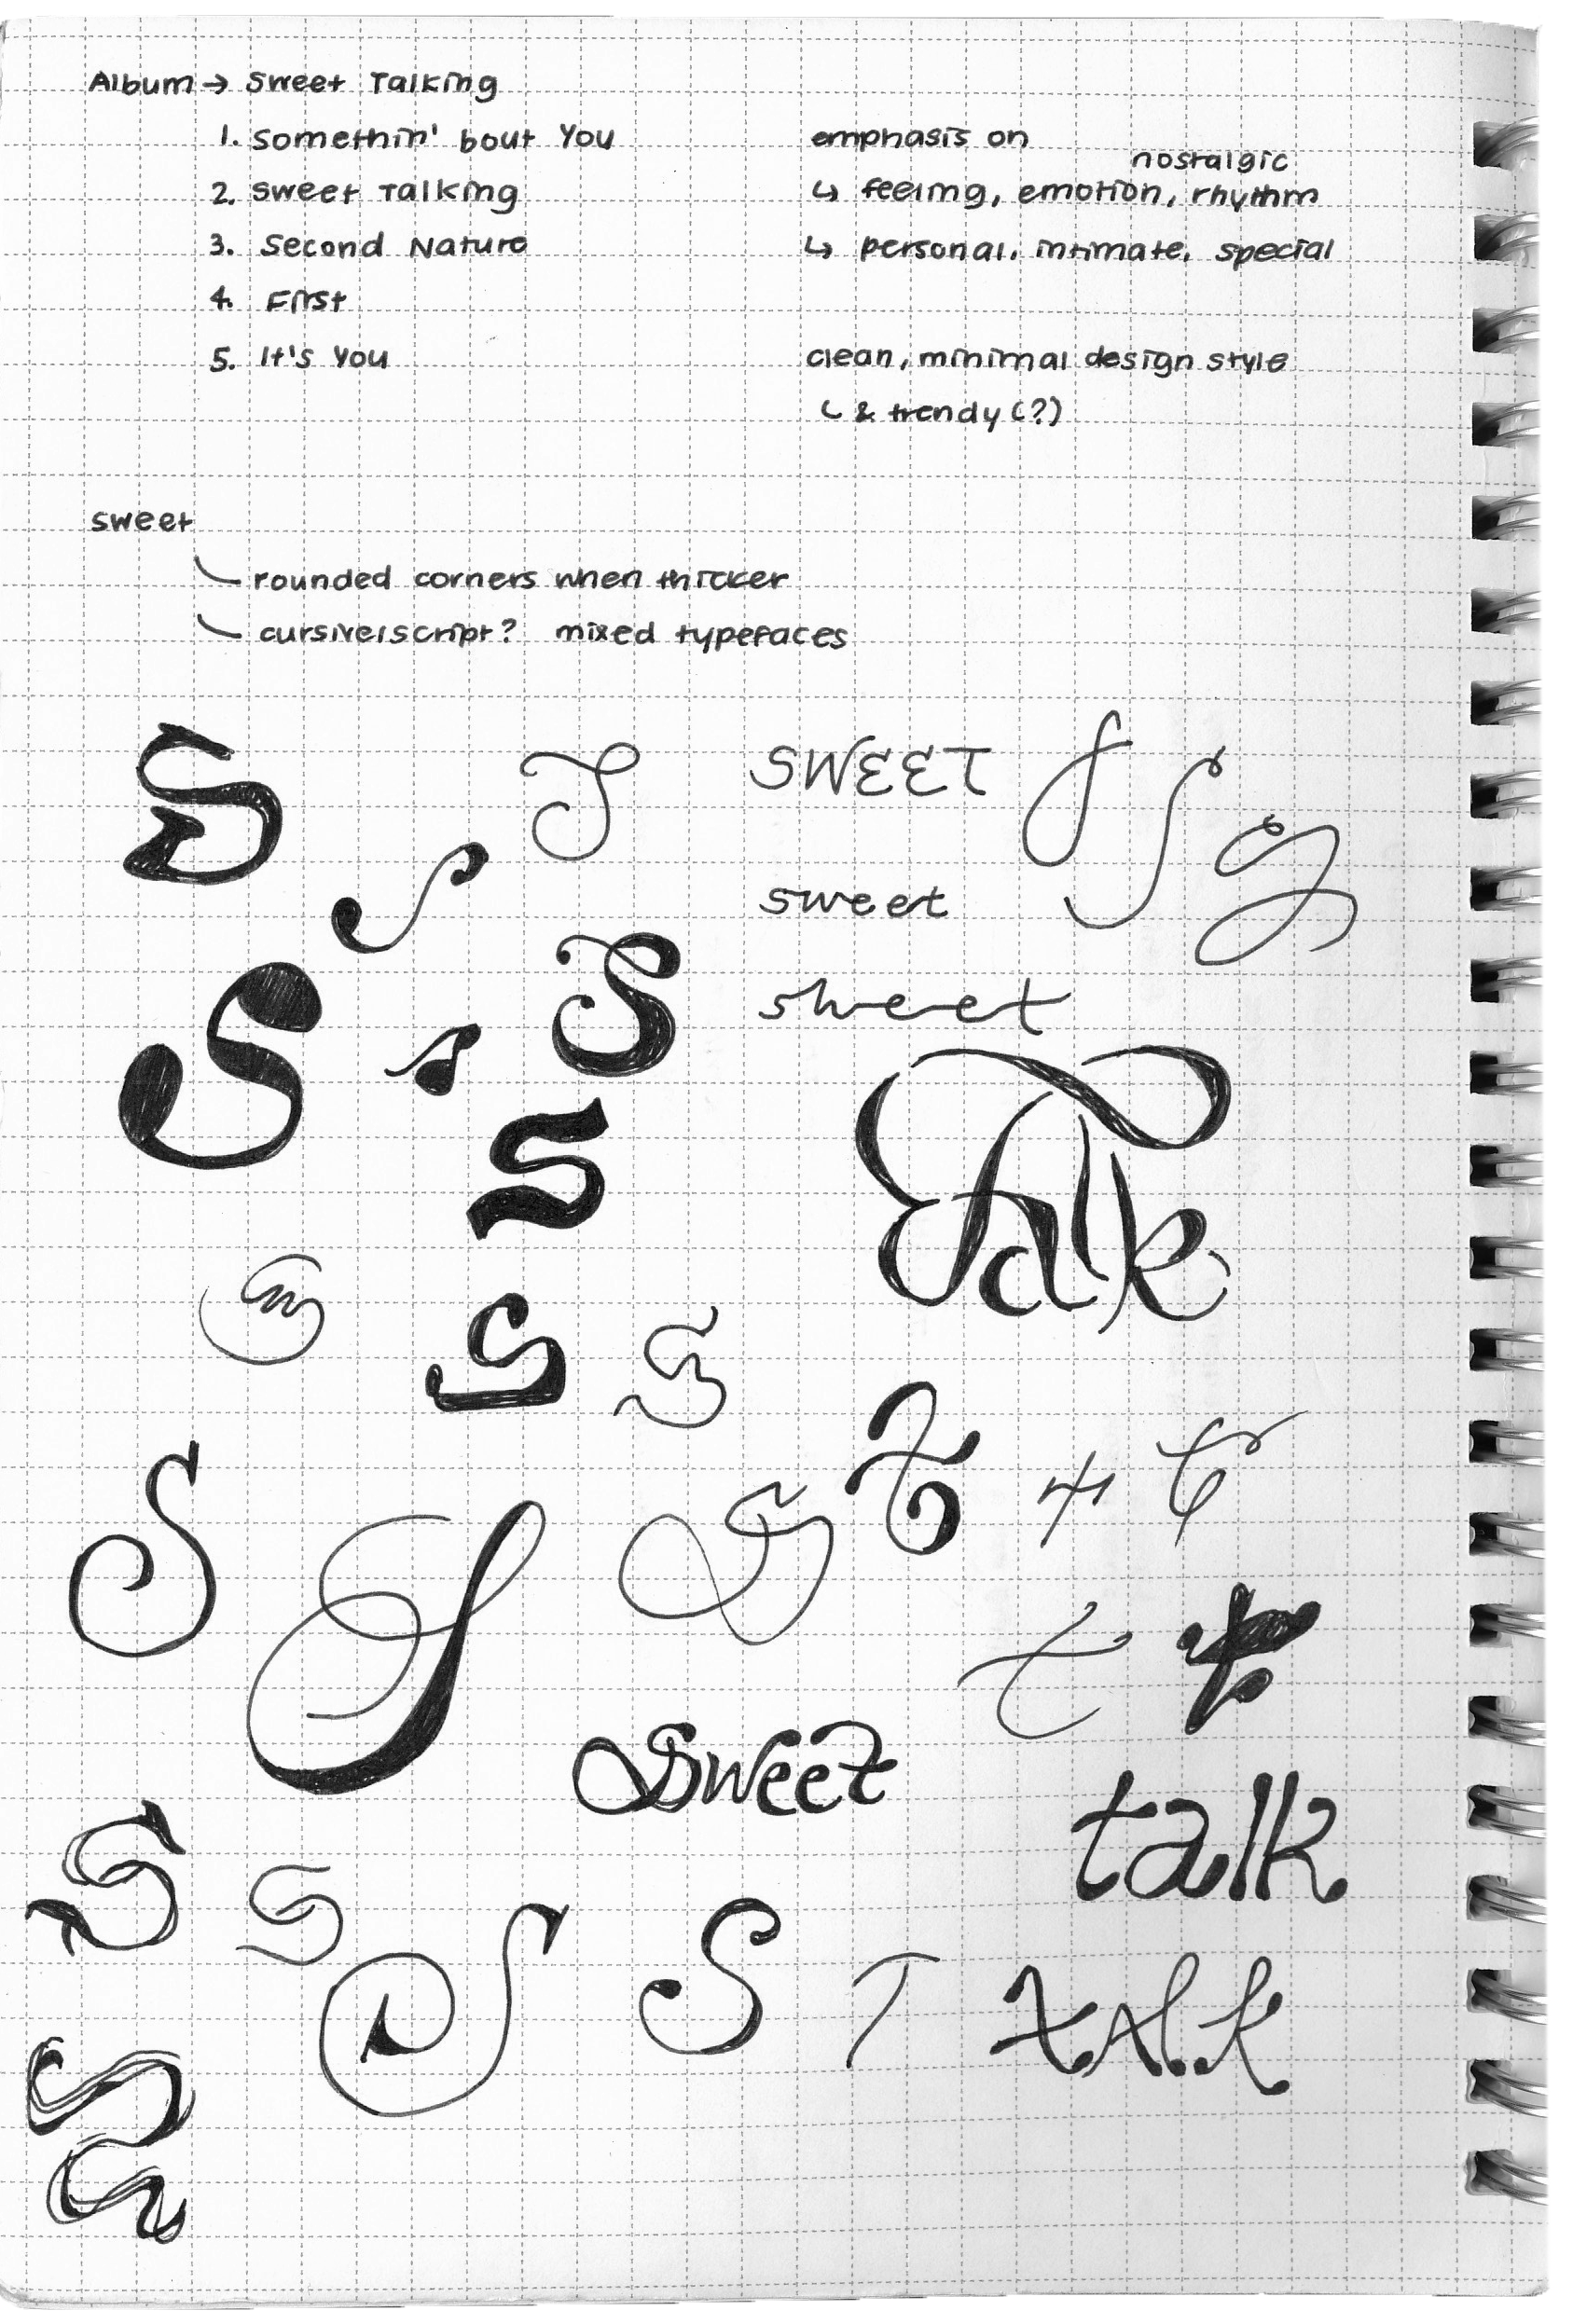 Album → Sweet Talking
1. Somethin' bout You
2. Sweet Talking
3. Second Nature
4. First
5. It's You
emphasis on
nostalgic
↳ feeling, emotion, rhythm
↳ personal, intimate, special
clean, minimal design style
↳ & trendy (?)
sweet
rounded corners when thicker
cursive/script? mixed typefaces
S
S
S
SWEET
S
S
S
S
sweet
S
S
sweet
S
Talk
S
S
S
S
t
t
t
S
S
S
t
t
sweet
talk
S
S
S
S
T
talk
S